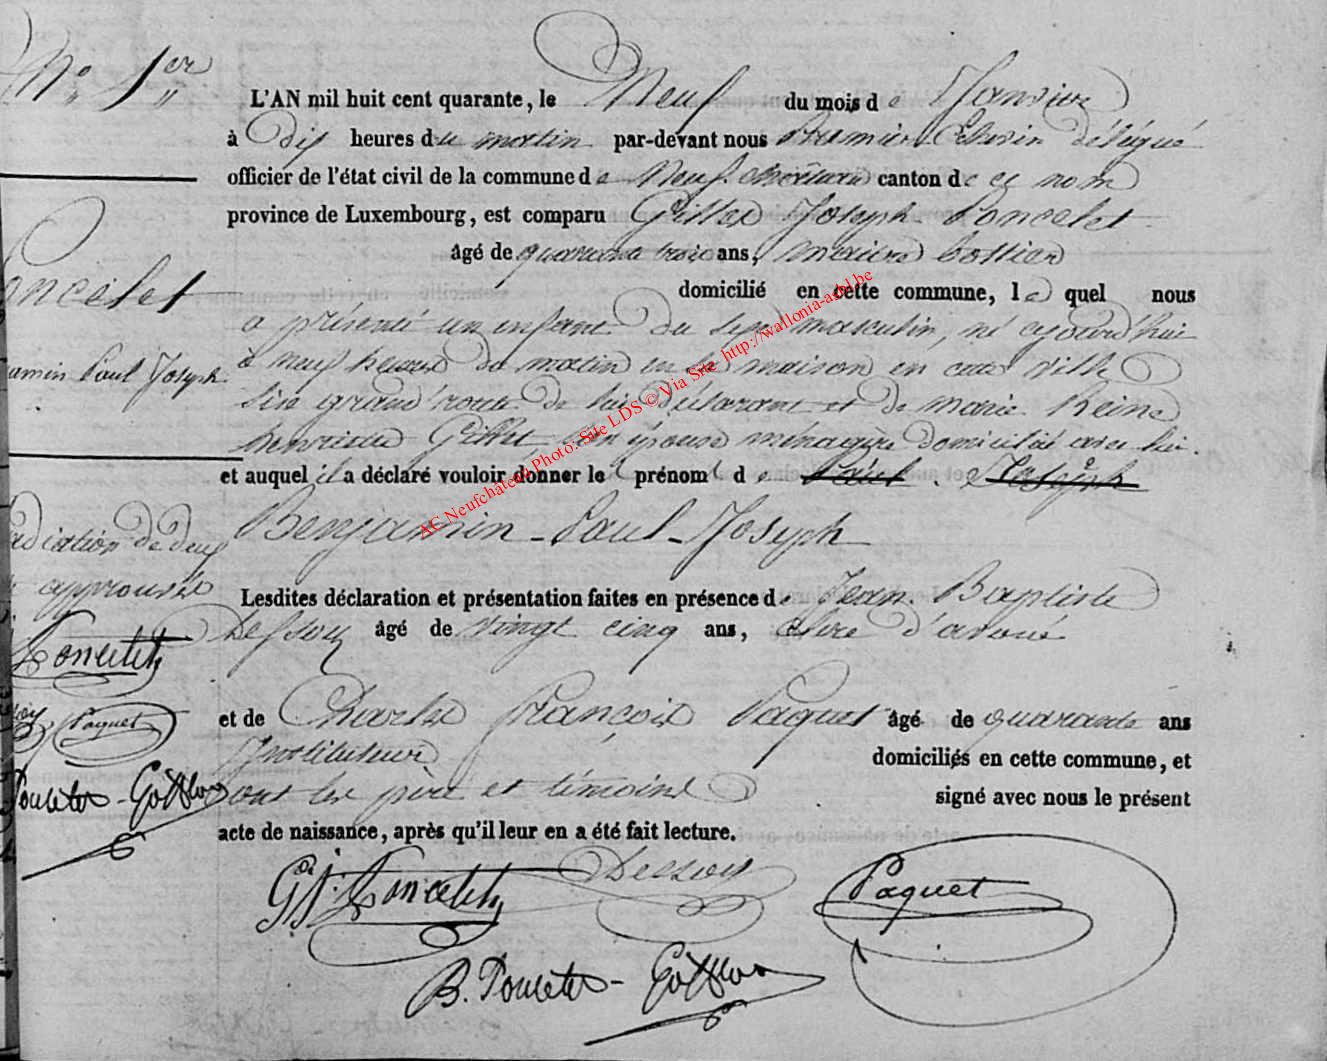 N° 1er
L'AN mil huit cent quarante, le Neuf du mois de Janvier
à dix heures du matin par-devant nous Premier Echevin délégué
officier de l'état civil de la commune de Neufchâteau canton de ce nom
province de Luxembourg, est comparu Gilles Joseph Poncelet
âgé de quarante trois ans, maitre bottier
domicilié en cette commune, le quel nous
a présenté un enfant du sexe masculin, né aujourd'hui
à neuf heures du matin en la maison en cette ville
sise grand route de lui déclarant et de Marie Reine
Henriette Gillet son épouse ménagère domiciliée avec lui.
et auquel il a déclaré vouloir donner le prénom de Paul. Joseph
Benjamin-Paul-Joseph
Lesdites déclaration et présentation faites en présence de Jean Baptiste
Dessoy âgé de vingt cinq ans, clerc d'avoué
et de Charles François Paquet âgé de quarante ans
Instituteur domiciliés en cette commune, et
ont les père et témoins signé avec nous le présent
acte de naissance, après qu'il leur en a été fait lecture.
G. J. Poncelet Dessoy Paquet
B. Poncelet-
oncelet
amin Paul Joseph
adiation de deux
approuvée
Poncelet
Paquet
Poncelet-
AC Neufchâteau Photo: Site LDS © Via Site http://wallonia-asbl.be